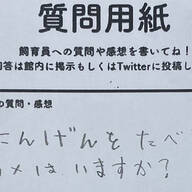 質問用紙
飼育員への質問や感想を書いてね！
回答は館内に掲示もしくはTwitterに投稿し
の質問・感想
にんげんをたべ
メはいますか？